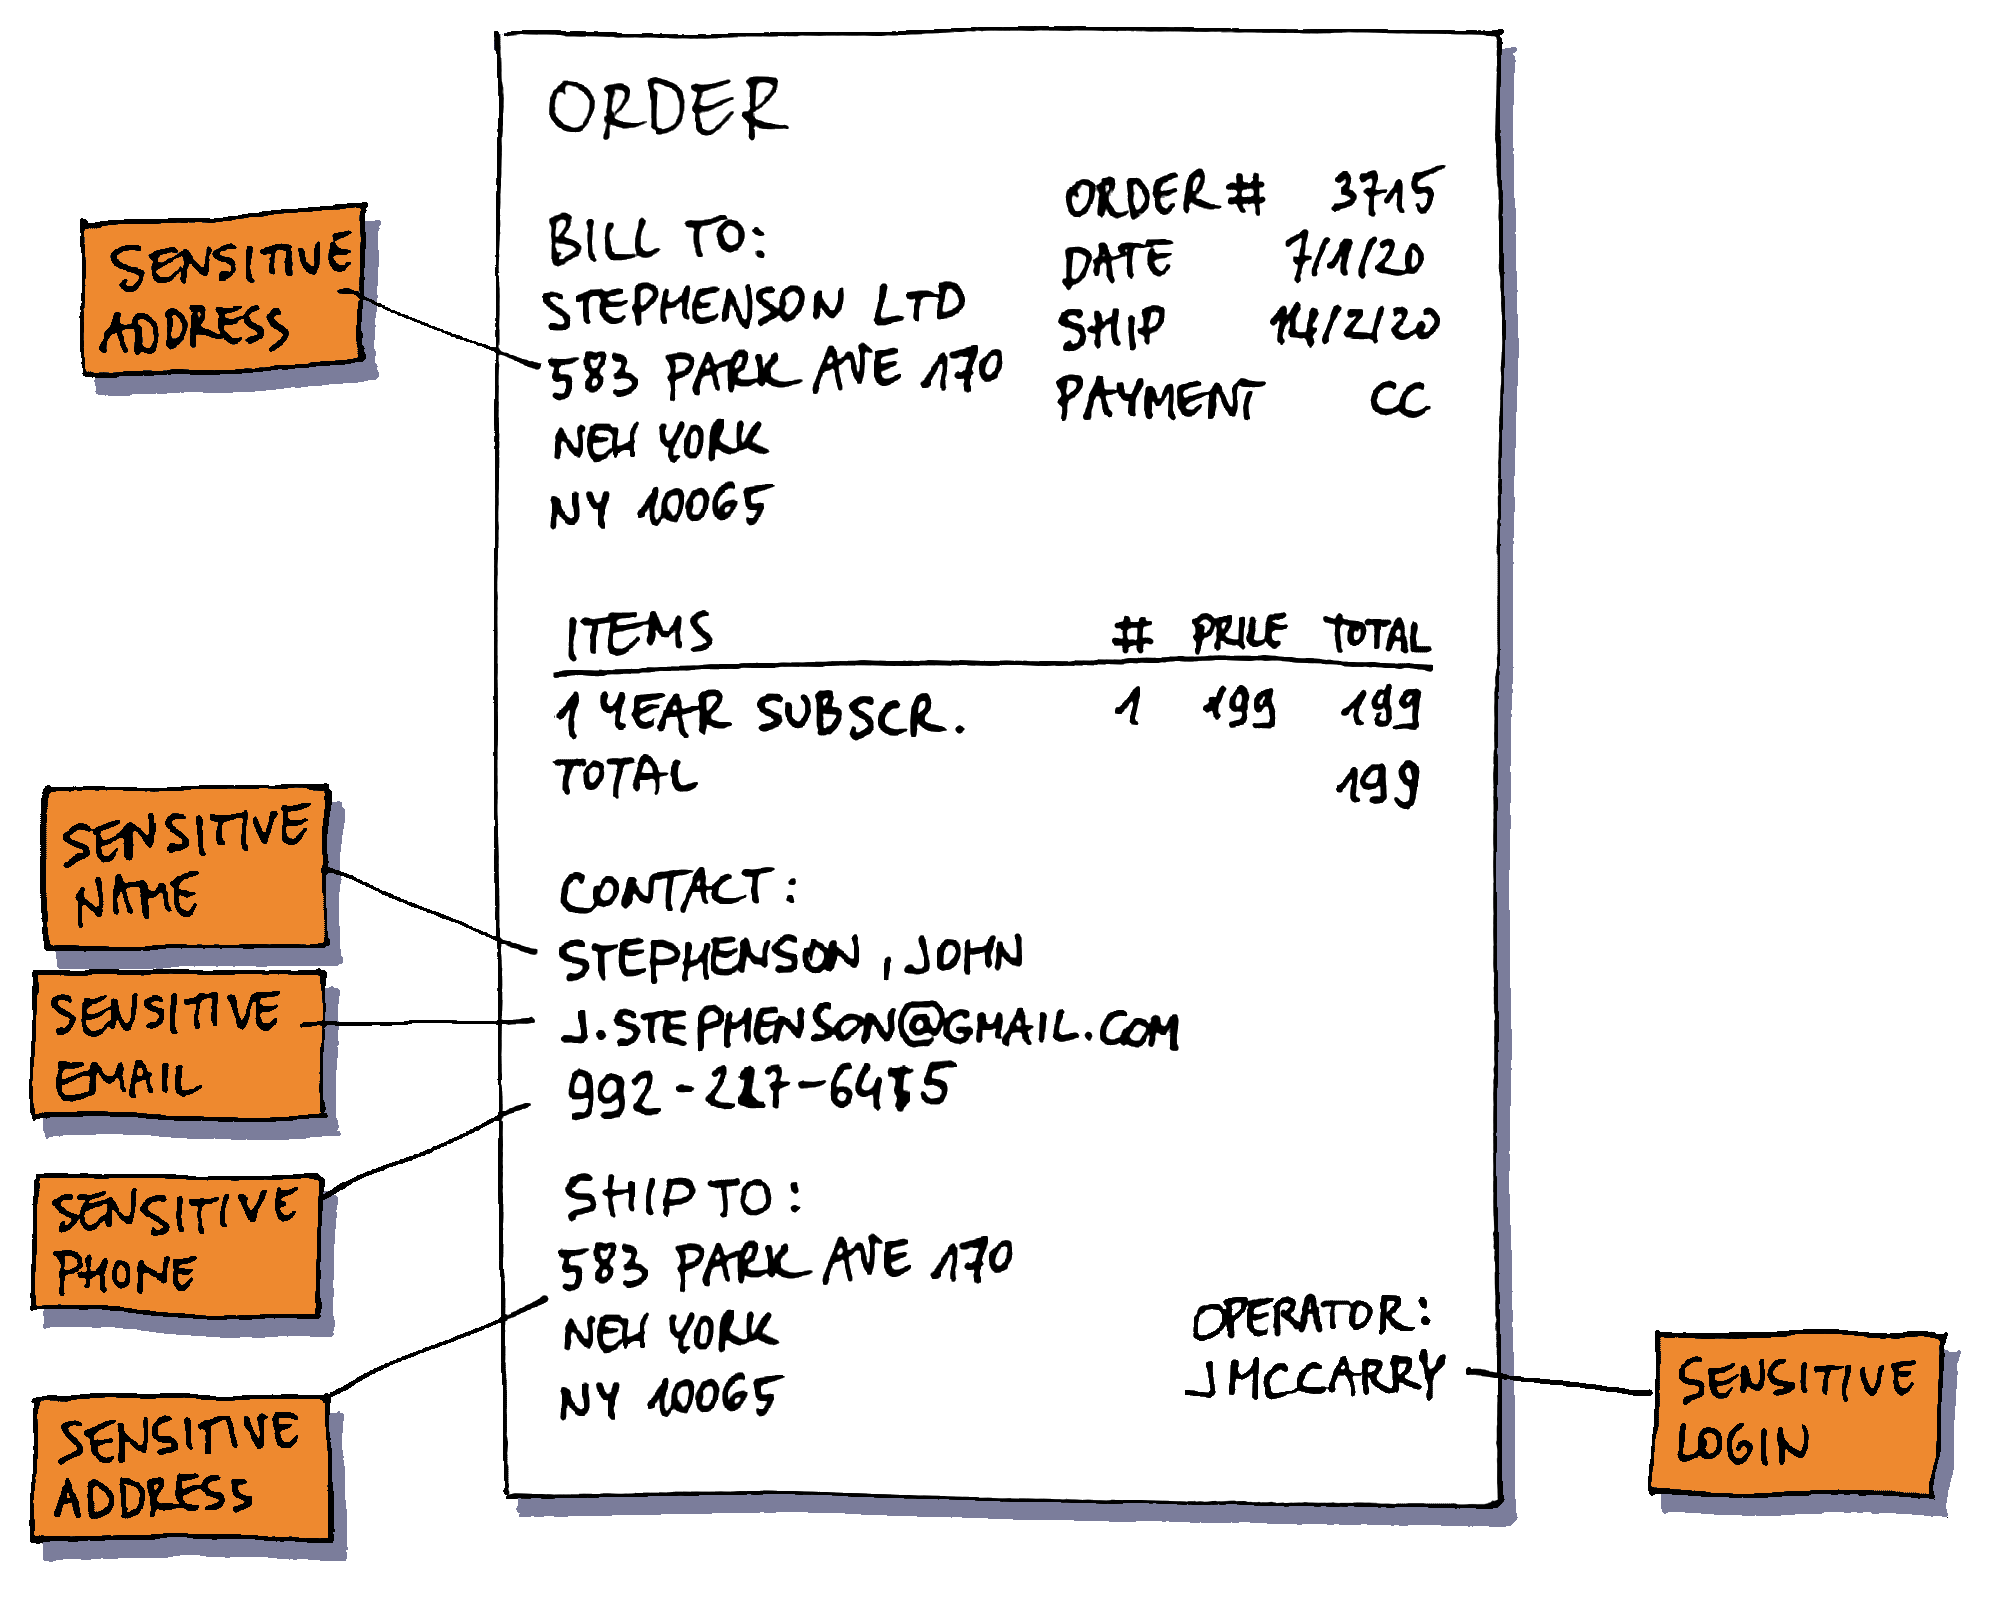 ORDER
ORDER # 3715
BILL TO:
DATE 7/1/20
STEPHENSON LTD
SHIP 14/2/20
583 PARK AVE 170
PAYMENT CC
NEW YORK
NY 10065
SENSITIVE
ADDRESS
ITEMS # PRICE TOTAL
1 YEAR SUBSCR. 1 199 199
TOTAL 199
SENSITIVE
NAME
CONTACT:
STEPHENSON, JOHN
J.STEPHENSON@GMAIL.COM
992-227-6415
SENSITIVE
EMAIL
SENSITIVE
PHONE
SHIP TO:
583 PARK AVE 170
NEW YORK
NY 10065
SENSITIVE
ADDRESS
OPERATOR:
JMCCARRY
SENSITIVE
LOGIN